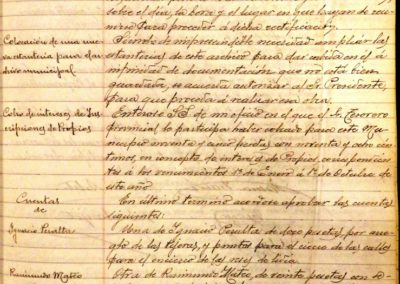 sobre el día, la hora y el lugar en que hayan de reu-
nirse para proceder á dicha rectificación.
Colocación de una nue-
va estantería para el ar-
chivo municipal
Siendo de imprescindible necesidad ampliar las
estanterías de este archivo para dar cabida en él á
infinidad de documentación que no está bien
guardada, se acuerda autorizar al Sr. Presidente,
para que proceda á realizar esa obra.
Cobro de intereses de Ins-
cripciones de Propios
Enterose S.S. de un oficio en el que el Sr. Tesorero
provincial le participa haber cobrado para este Mu-
nicipio noventa y cinco pesetas con noventa y ocho cén-
timos, en concepto de intereses de Propios correspondien-
tes á los vencimientos 1º de Enero á 1º de Octubre de
este año.
Cuentas
de
En último término acordose aprobar las cuentas
siguientes:
Ignacio Peralta
Una de Ignacio Peralta de doce pesetas por
de las tijeras, y puntas para el cierre de las calles
para el encierro de las
Raimundo Mateo
Otra de Raimundo Mateo, de veinte pesetas con